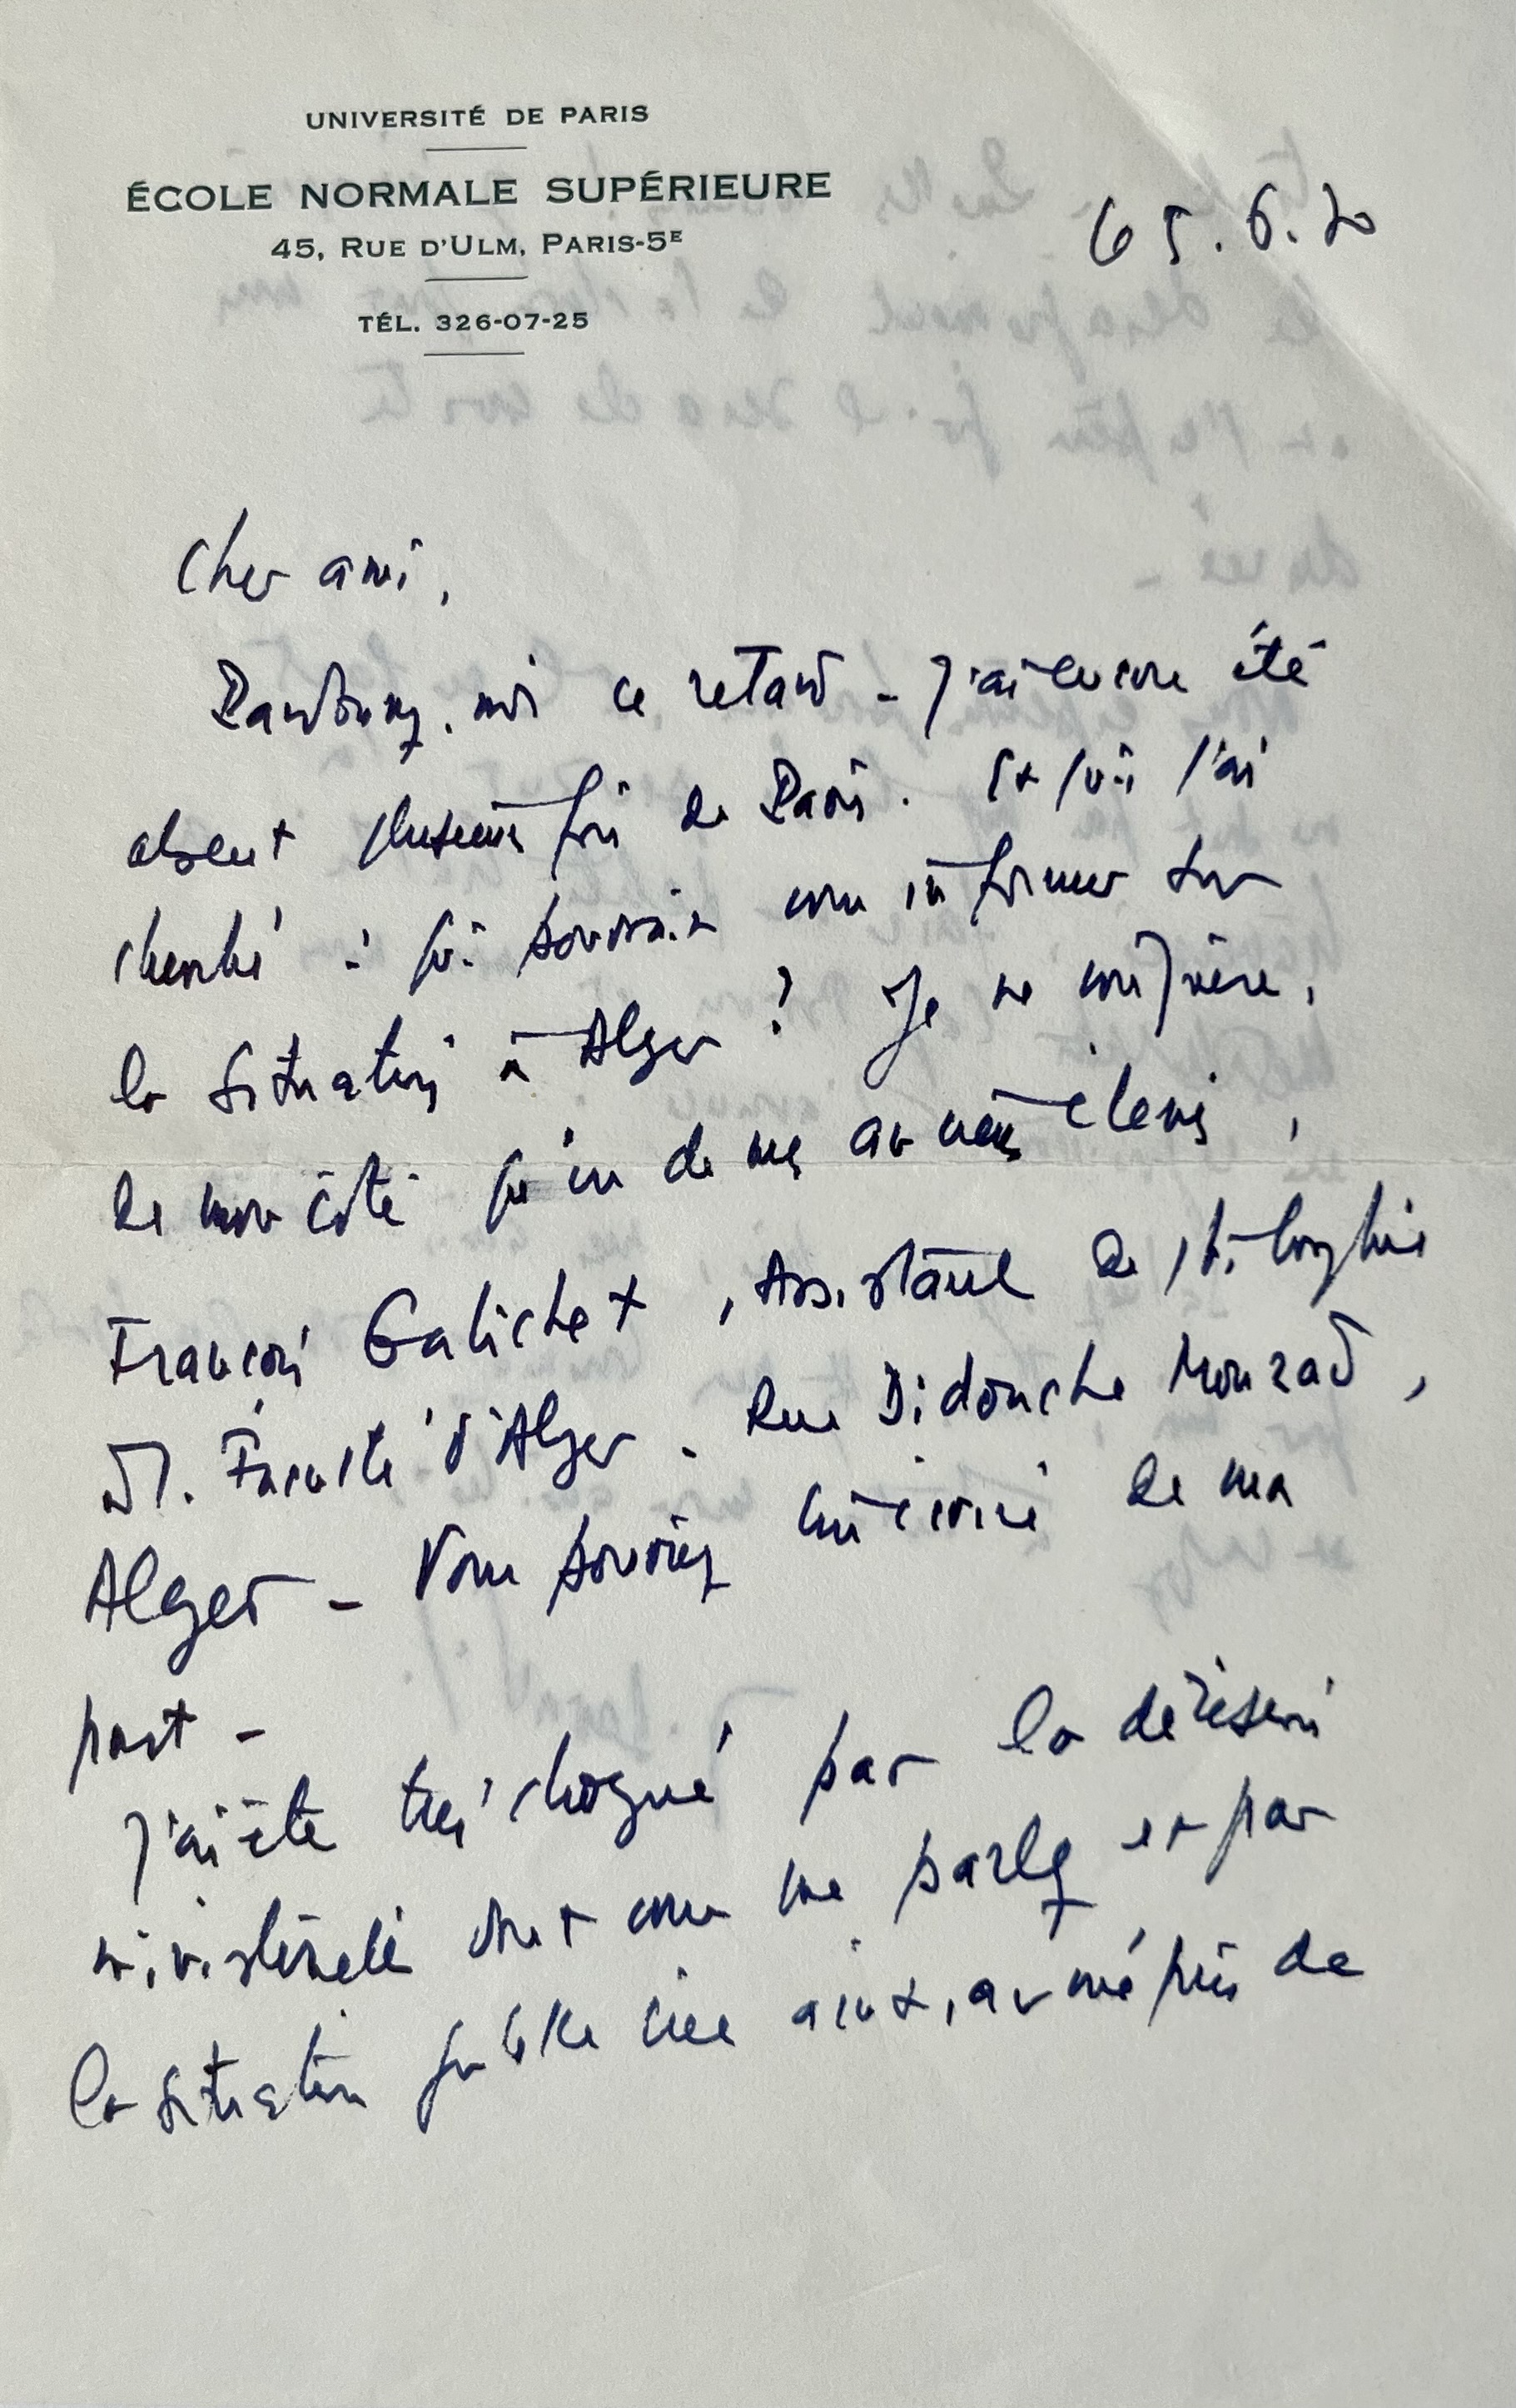 UNIVERSITÉ DE PARIS
ÉCOLE NORMALE SUPÉRIEURE
45, RUE D'ULM, PARIS-5E
TÉL. 326-07-25
6.70
Cher ami,
Pardonnez-moi ce retard - J'ai encore été
absent plusieurs fois de Paris. Et puis j'ai
cherché : qui pourrait vous informer sur
la situation à Alger ? Je ne vois guère,
de mon côté qu'un de mes anciens élèves,
François Galichet, Assistant de philosophie
Faculté d'Alger. Rue Didouche Mourad,
Alger - Vous pourriez lui écrire de ma
part -
J'ai été très choqué par la décision
ministérielle dont vous me parlez et par
la situation qu'elle crée ainsi, au mépris de